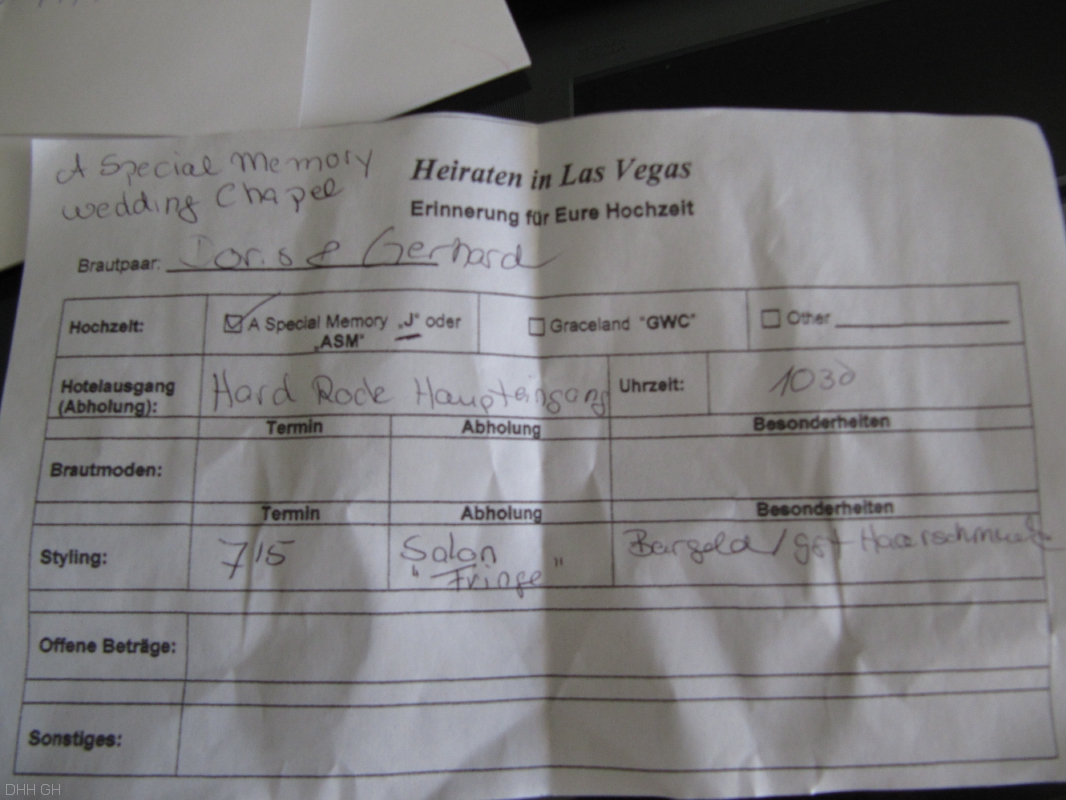 A Special Memory
Wedding Chapel
Heiraten in Las Vegas
Erinnerung für Eure Hochzeit
Brautpaar: Doris & Gerhard
Hochzeit: ☑ A Special Memory „J" oder „ASM" ☐ Graceland "GWC" ☐ Other
Hotelausgang (Abholung): Hard Rock Haupteingang Uhrzeit: 1030
Termin Abholung Besonderheiten
Brautmoden:
Termin Abholung Besonderheiten
Styling: 715 Salon " Fringe " Bargeld / ggf Haarschmuck
Offene Beträge:
Sonstiges:
DHH GH